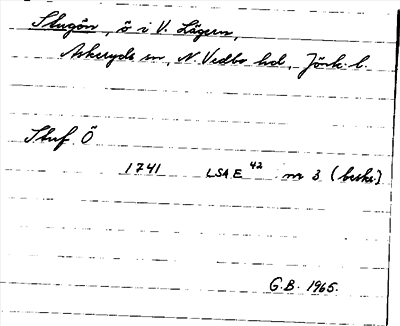 Slugön, ö i V. Lägern,
Askeryds sn, N. Vedbo hd, Jönk. l.
Sluf Ö
1741 LSA E 42 nr 3 (beskr)
G.B. 1965.